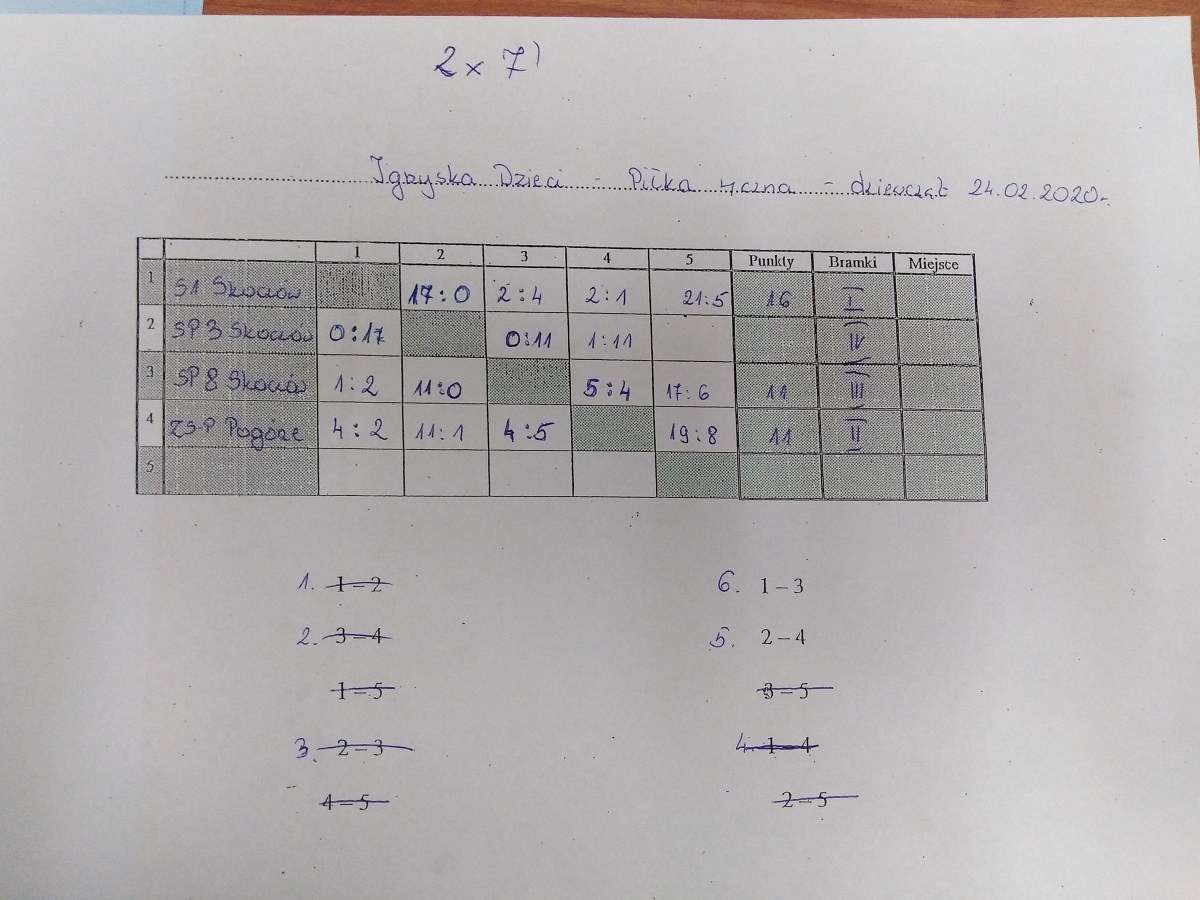 2 x 7'
Igrzyska Dzieci - Piłka ręczna - dziewcząt 24.02.2020r.
1 2 3 4 5 Punkty Bramki Miejsce
1 S1 Skoczów 17:0 2:4 2:1 21:5 16 I
2 SP 3 Skoczów 0:17 0:11 1:11 IV
3 SP 8 Skoczów 1:2 11:0 5:4 17:6 11 III
4 ZSP Pogórze 4:2 11:1 4:5 19:8 11 II
5
1. 1 – 2
2. 3 – 4
1 – 5
3. 2 – 3
4 – 5
6. 1 – 3
5. 2 – 4
3 – 5
4. 1 – 4
2 – 5